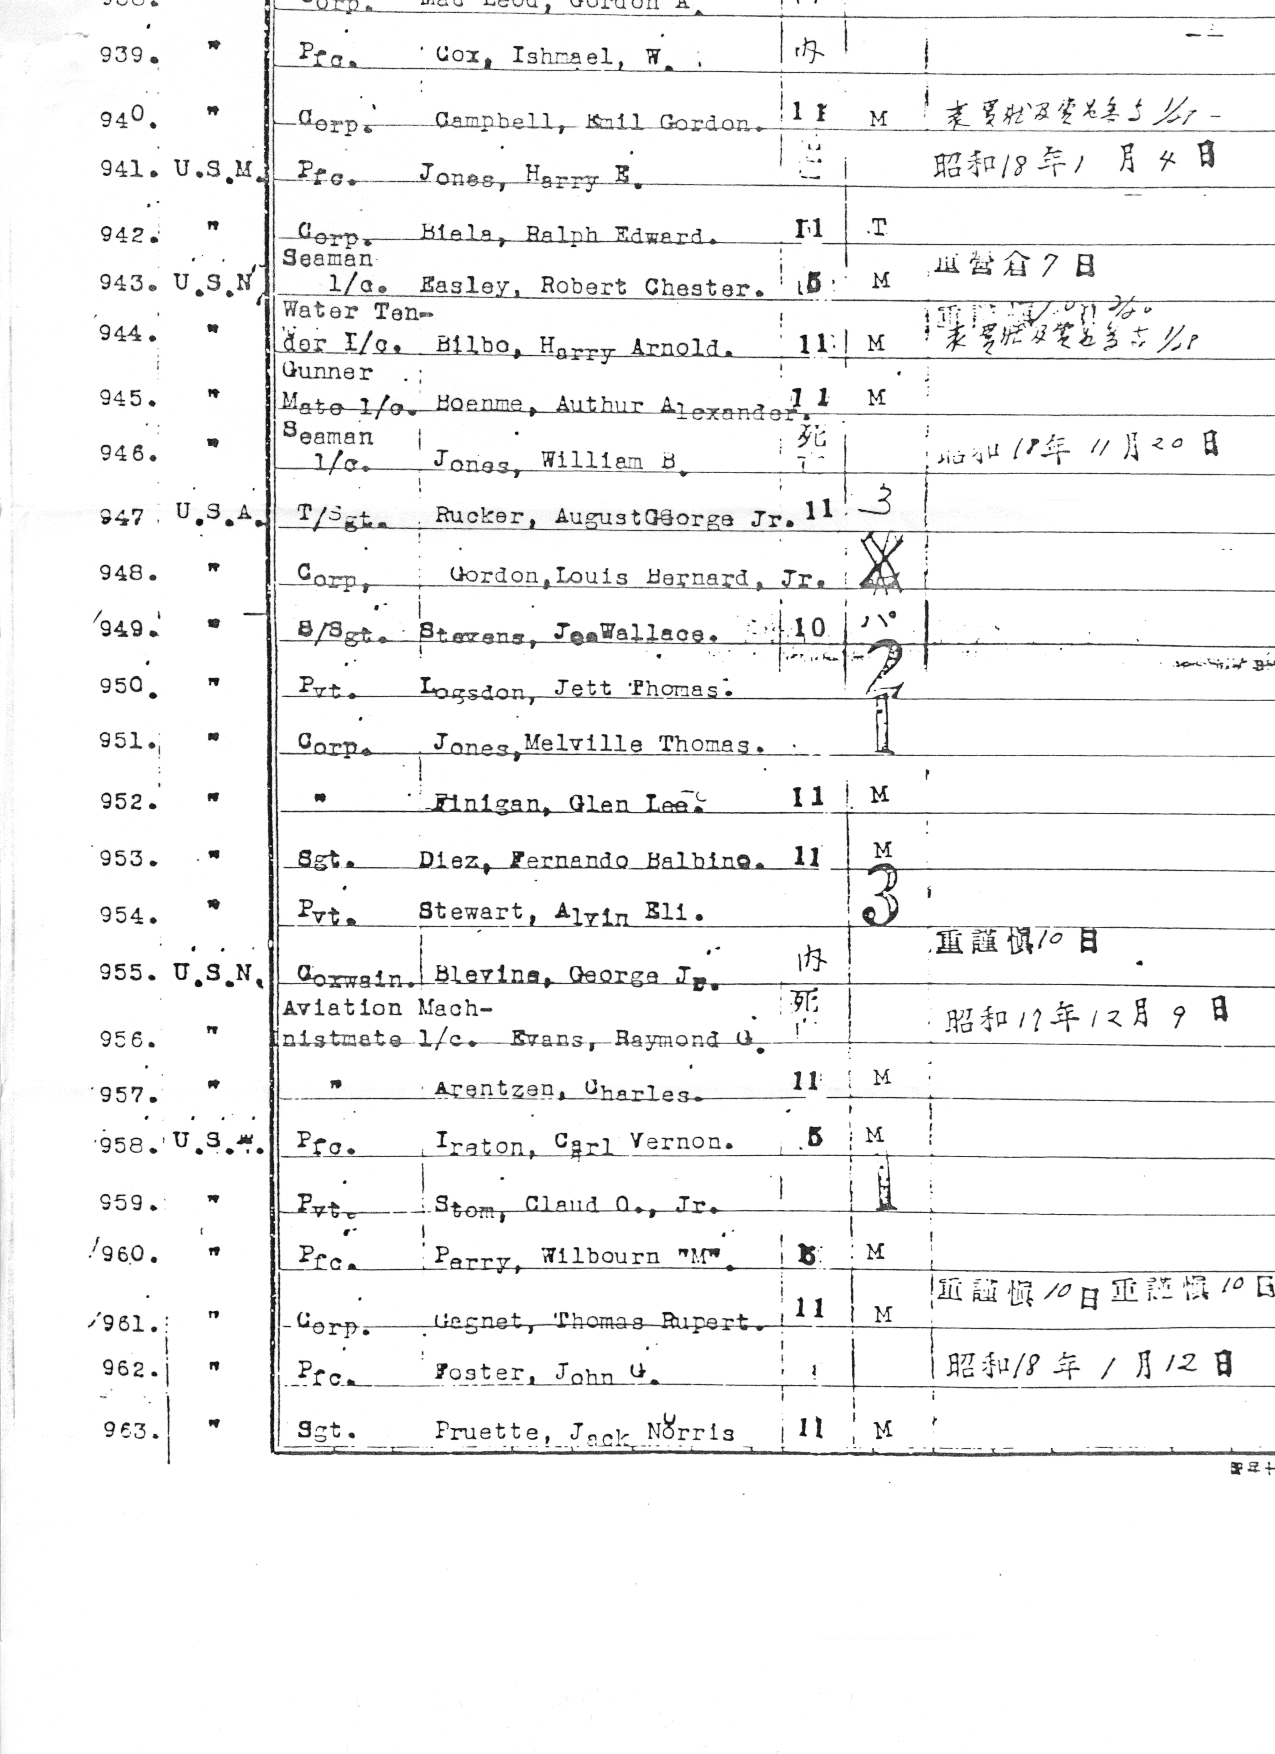 Corp. Mac Leod, Gordon A.
939. " Pfc. Cox, Ishmael, W. 内
940. " Corp. Campbell, Emil Gordon. 11 M 表賞状及賞品授与 1/28
941. U.S.M. Pfc. Jones, Harry E. 昭和18年1月4日
942. " Corp. Biela, Ralph Edward. 11 T
Seaman
943. U.S.N. 1/c. Easley, Robert Chester. 5 M 重営倉7日
Water Ten-
944. " der I/c. Bilbo, Harry Arnold. 11 M 表賞状及賞品 1/28
Gunner
945. " Mate 1/c. Boenme, Authur Alexander. 11 M
Seaman 死
946. " 1/c. Jones, William B. 昭和18年11月20日
947 U.S.A. T/Sgt. Rucker, August George Jr. 11 3
948. " Corp, Gordon, Louis Bernard, Jr.
949. " S/Sgt. Stevens, Joe Wallace. 10 パ
950. " Pvt. Logsdon, Jett Thomas. 2
951. " Corp. Jones, Melville Thomas. 1
952. " " Finigan, Glen Lee. 11 M
953. " Sgt. Diez, Fernando Balbino. 11 M
954. " Pvt. Stewart, Alvin Eli. 3
955. U.S.N. Coxwain. Blevins, George Jr. 内 重謹慎10日
Aviation Mach- 死
956. " nistmate 1/c. Evans, Raymond O. 昭和17年12月9日
957. " " Arentzen, Charles. 11 M
958. U.S. Pfc. Ireton, Carl Vernon. 5 M
959. " Pvt. Stom, Claud O., Jr. 1
960. " Pfc. Perry, Wilbourn "M". 5 M
961. " Corp. Gagnet, Thomas Rupert. 11 M 重謹慎10日 重謹慎10日
962. " Pfc. Foster, John G. 昭和18年1月12日
963. " Sgt. Pruette, Jack Norris 11 M